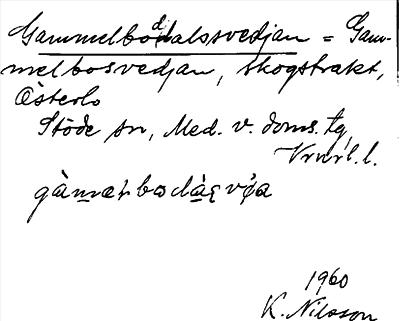 Gammelbodalssvedjan = Gam-
melbosvedjan, skogstrakt,
Österlo
Stöde sn, Med. v. doms. tg,
Vrnrl. l.
1960
K. Nilsson